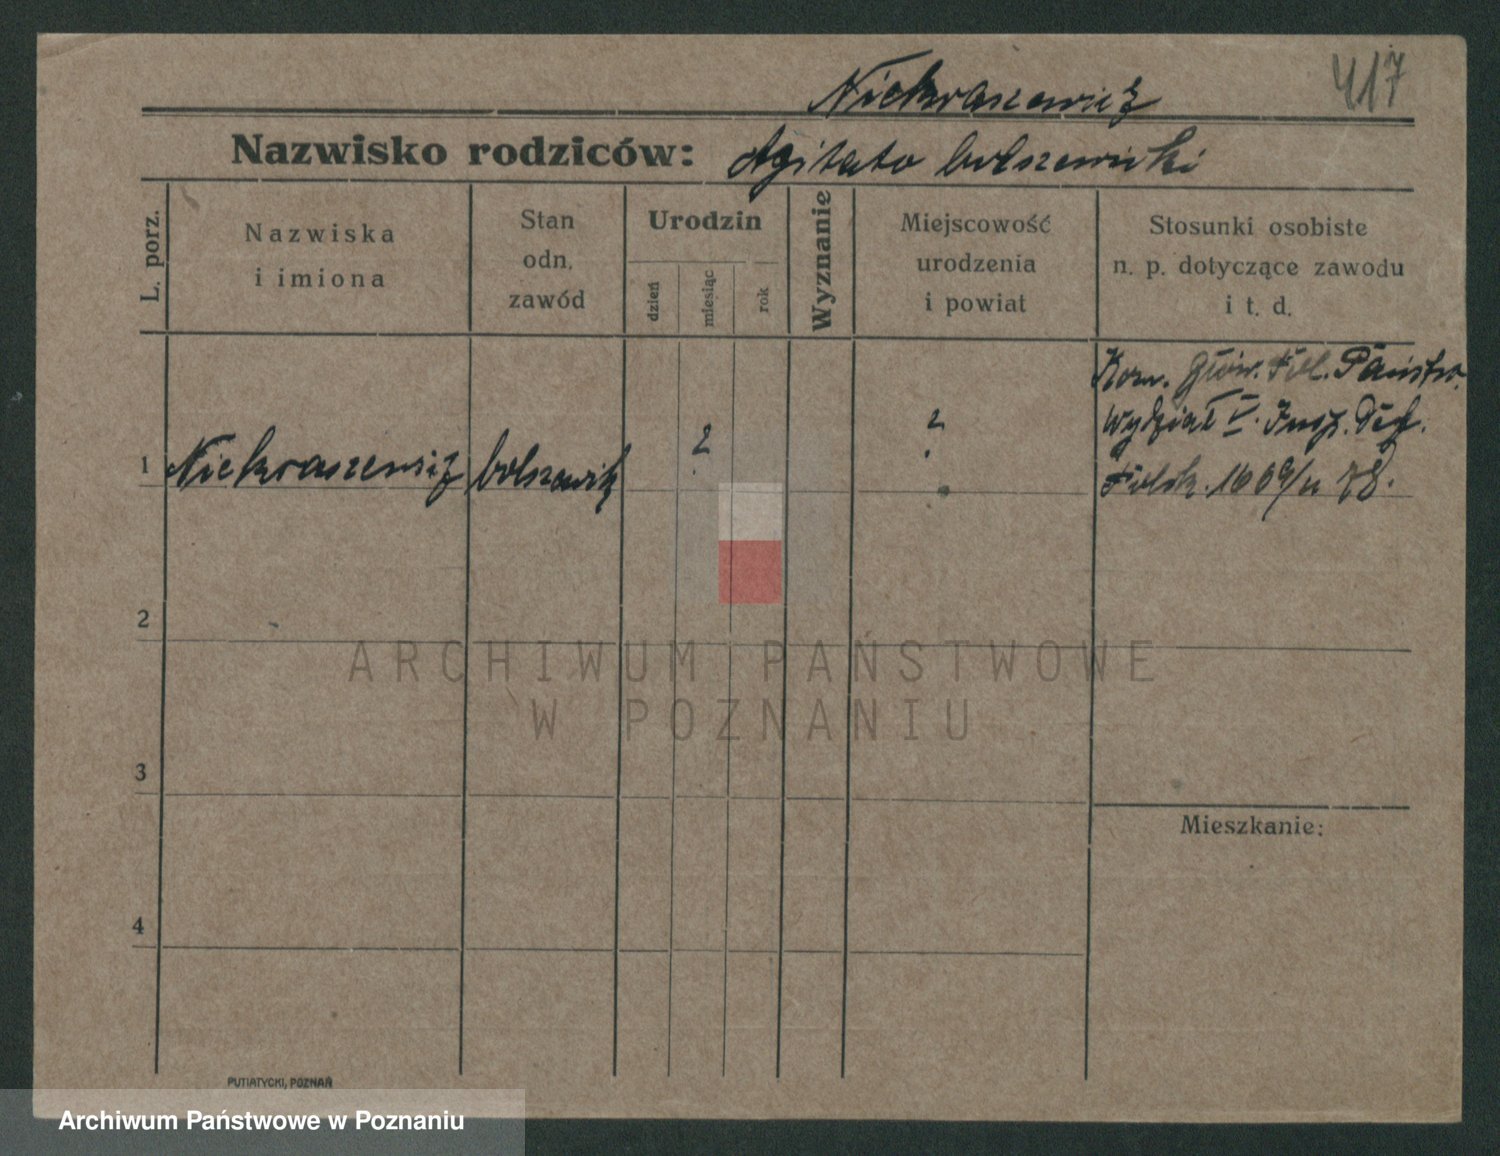 417
Niekraszewicz
Nazwisko rodziców: Agitato bolszewicki
L. porz.
Nazwiska
i imiona
Stan
odn.
zawód
Urodzin
dzień
miesiąc
rok
Wyznanie
Miejscowość
urodzenia
i powiat
Stosunki osobiste
n. p. dotyczące zawodu
i t. d.
1 Niekraszewicz bolszewik ? ?
Kom. Głów. Pol. Państw.
Wydział V. Insp. Def.
Polit. 1669/u
2
3
4
Mieszkanie:
ARCHIWUM PAŃSTWOWE
W POZNANIU
PUTIATYCKI, POZNAŃ
Archiwum Państwowe w Poznaniu